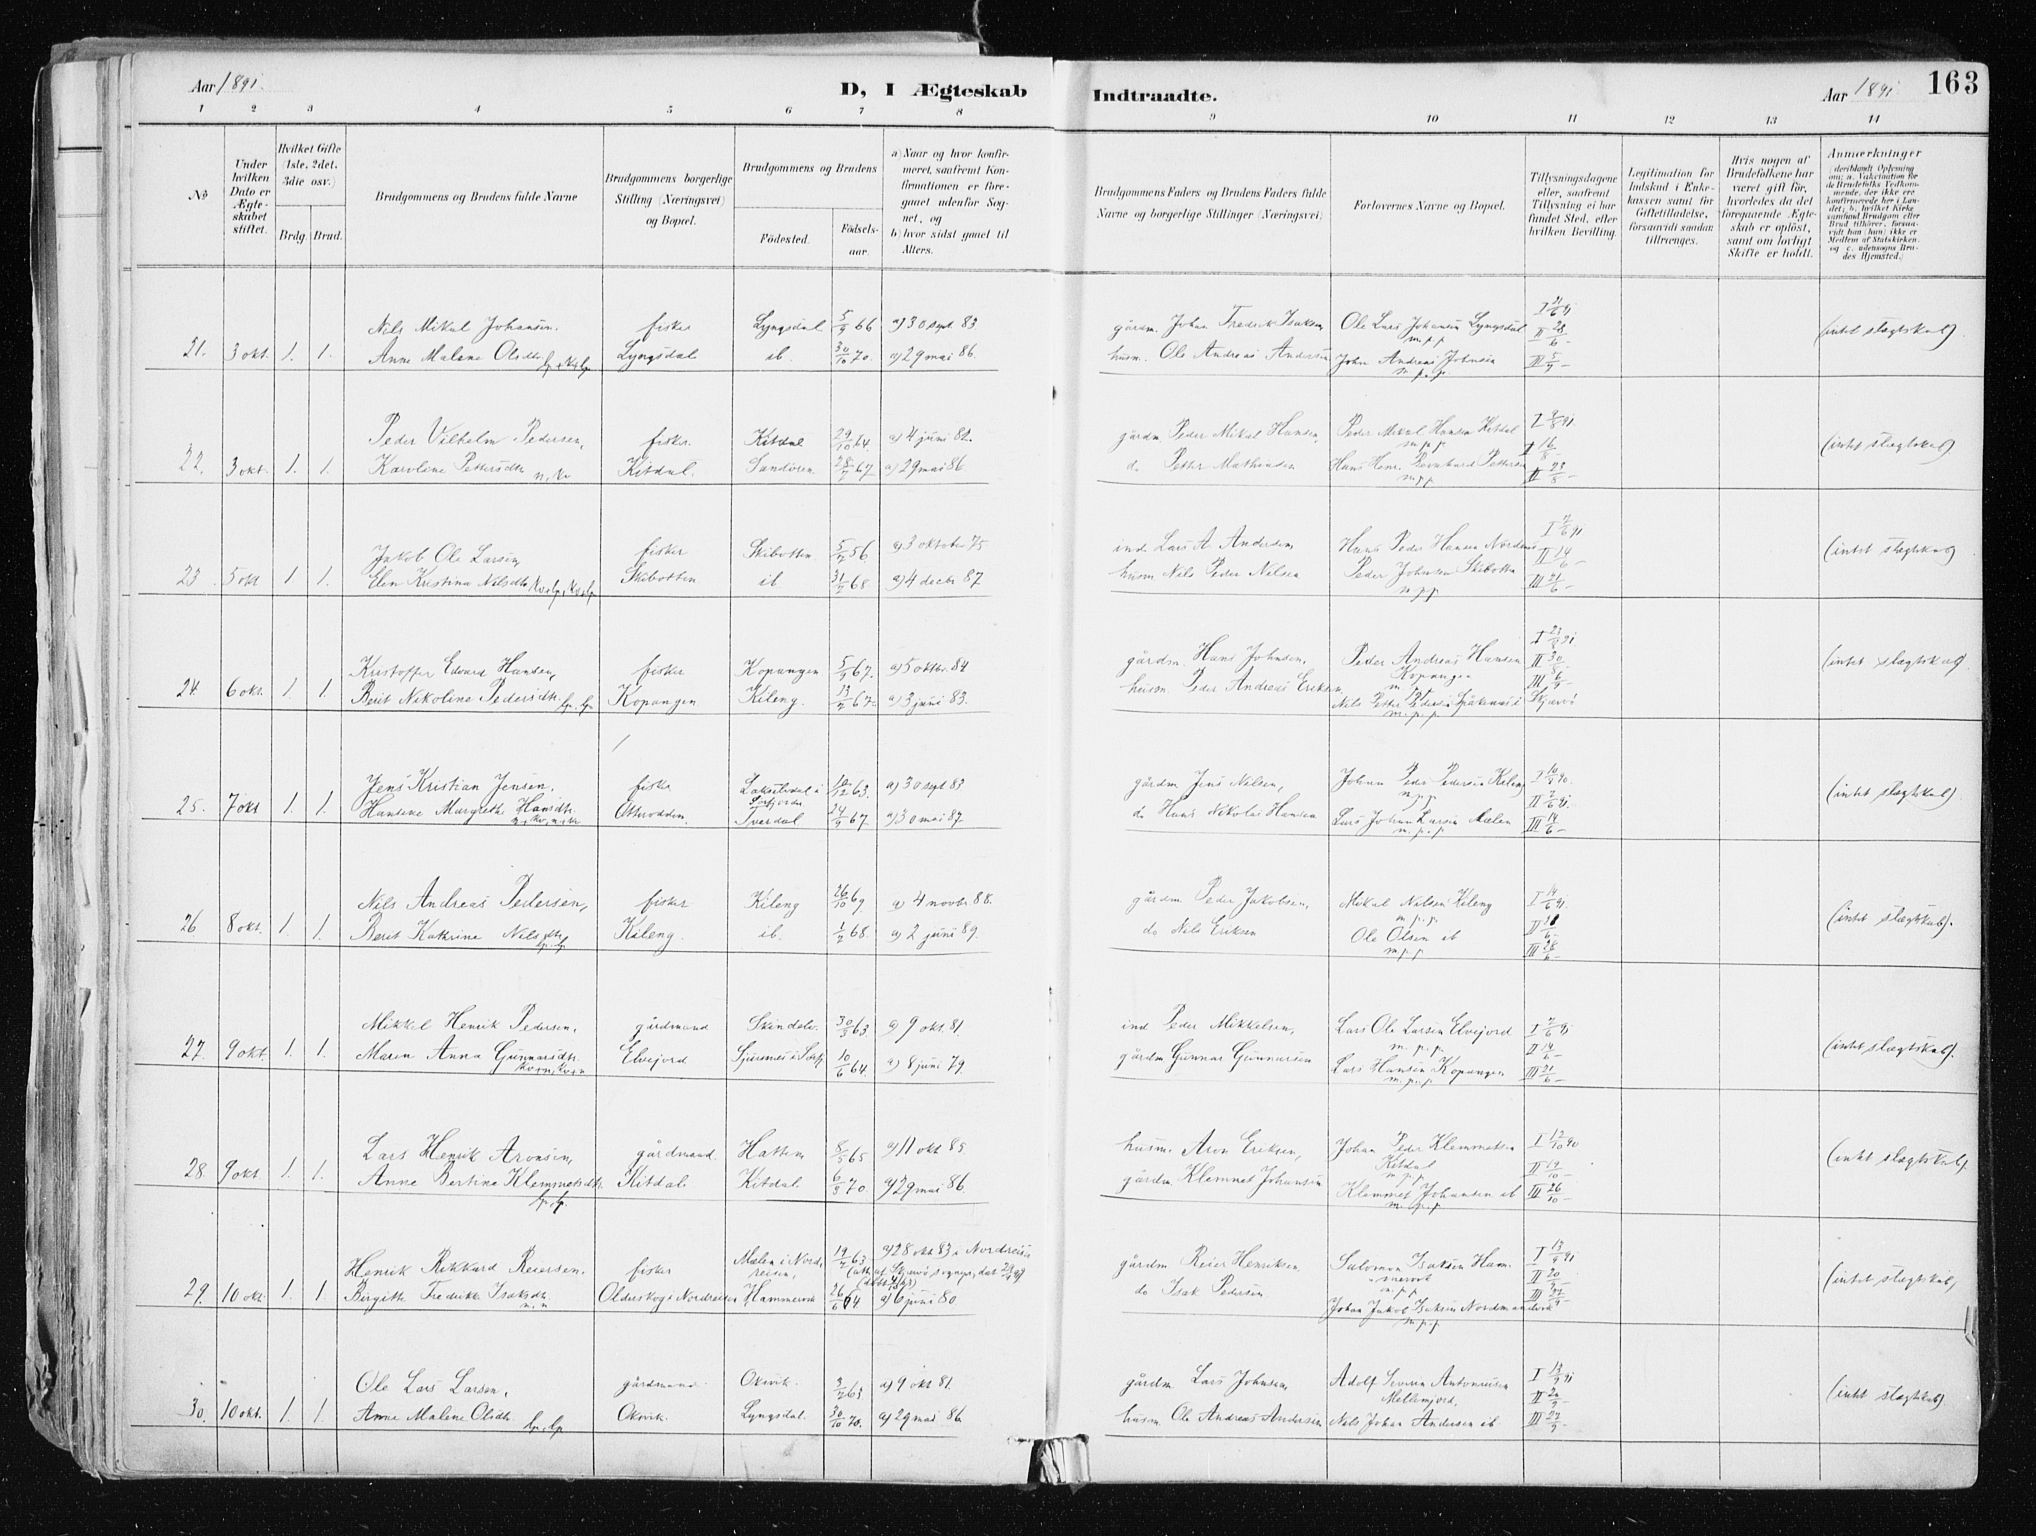 Aar 1891.
D, I Ægteskab Indtraadte.
Aar 1891
163
1 2 3 4 5 6 7 8 9 10 11 12 13 14
No
Under hvilken Dato er Ægteskabet stiftet.
Hvilket Gifte (1ste, 2det, 3die osv.)
Brdg. Brud.
Brudgommens og Brudens fulde Navne
Brudgommens borgerlige Stilling (Næringsvei) og Bopæl.
Brudgommens og Brudens
Fødested. Fødselsaar.
a) Naar og hvor konfirmeret, saafremt Konfirmationen er foregaaet udenfor Sognet, og
b) hvor sidst gaaet til Alters.
Brudgommens Faders og Brudens Faders fulde Navne og borgerlige Stillinger (Næringsvei)
Forlovernes Navne og Bopæl.
Tillysningsdagene eller, saafremt Tillysning ei har fundet Sted, efter hvilken Bevilling.
Legitimation for Indskud i Enkekassen samt for Giftetilladelse, forsaavidt saadan tiltrænges.
Hvis nogen af Brudefolkene har været gift før, hvorledes da det foregaaende Ægteskab er opløst, samt om lovligt Skifte er holdt.
Anmærkninger (deriblandt Oplysning om: a. Vakcination for de Brudefolks Vedkommende, der ikke ere konfirmerede her i Landet; b. hvilket Kirkesamfund Brudgom eller Brud tilhører, forsaavidt han (hun) ikke er Medlem af Statskirken, og c. udensogns Brudes Hjemsted.)
Nils Mikal Johansen. fisker Lyngsdal 5/9 66 a) 30 sept 83 gårdm. Johan Fredrik Isaksen Ole Lars Johansen Lyngsdal m.p.p. I 21/6 91 II 28/6 –
21. 3 okt. 1. 1. Anne Malene Olsdtr. Lyngsdal ib. 30/10 70. a) 29 mai 86. husm. Ole Andreas Andersen John Andreas Johnsen m.p.p. III 5/7 – (intet slægtskab).
Peder Vilhelm Pedersen, fisker Kitdal 29/10 64. a) 4 juni 82. gårdm Peder Mikal Hansen, Peder Mikal Hansen Kitdal m.p.p. I 9/8 91 II 16/8 –
22. 3 okt. 1. 1. Karoline Pettersdtr Kitdal. Sandøren 28/7 67. a) 29 mai 86 do Petter Mathiasen Hans Henr. Bernhard Pettersen m.p.p. 23/8 – (intet slægtskab)
Jakob Ole Larsen, fisker Skibotten 5/2 56. a) 3 oktober 75 ind. Lars A. Andersen, Hans Peder Hansen Nordnes I 7/6 91 II 14/6 –
23 5 okt 1 1. Elen Kristina Nilsdtr Skibotten ib 68 a) 4 decbr 87. husm Nils Peder Nilsen Peder Johnsen Skibotten m.p.p. III 21/6 – (intet slægtskab)
Kristoffer Edvard Hansen, fisker Kopangen 5/9 67. a) 5 oktbr. 84 gårdm. Hans Johnsen, Peder Andreas Hansen Kopangen m.p.p. I 23/8 91 II 30/8 –
24 6 okt. 1. 1. Berit Nikoline Pedersdtr. Kopangen Kileng. 13/2 67. a) 3 juni 83. husm. Peder Andreas Eriksen, Nils Petter Pedersen Spåkenes i Skjærvø m.p.p. III (intet slægtskab).
Jens Kristian Jensen. fisker Lakselvdal i Sørfjorden 10/12 63. a) 30 sept 83 gårdm Jens Nilsen, Johan Peder Pedersen Kileng m.p.p. I 10/8 90. II 7/6 91.
25. 7 okt 1. 1. Hansine Margrethe Hansdtr. Otterodden. Tverdal 24/9 67. a) 30 mai 82. do Hans Nikolai Hansen Lars Johan Larsen Mælen m.p.p. III 14/6 – (intet slægtskab).
Nils Andreas Pedersen, fisker Kileng 26/10 69 a) 4 novbr 88. gårdm Peder Jakobsen, Mikal Nilsen Kileng m.p.p. I 14/6 91. II 21/6 –
26 8 okt. 1. 1. Berit Kathrine Nilsdtr Kileng. ib. 1/2 68. a) 2 juni 89. do Nils Eriksen Ole Olsen ib m.p.p. III 28/6 – (intet slægtskab).
Mikkel Henrik Pedersen, gårdmand Skindelv. 30/3 63. a) 9 okt. 81 ind Peder Mikkelsen, Lars Ole Larsen Elvejord m.p.p. I 7/6 91 II 14/6 –
27. 9 okt. 1. 1. Maren Anna Gunnarsdtr. Elvejord Sjursnes i Sørfj. 10/6 64. a) 8 juni 79. gårdm Gunnar Gunnarsen Lars Hansen Kopangen m.p.p. III 21/6 – (intet slægtskab).
Lars Henrik Aronsen, gårdmand. Hatten 8/5 65 a) 11 okt 85 husm. Aron Eriksen, Johan Peder Klemmetsen Kitdal m.p.p. I 12/10 90 II 19/10 –
28. 9 okt. 1. 1. Anne Bertine Klemmetsdtr. Kitdal. Kitdal 6/3 70. a) 29 mai 86. gårdm. Klemmet Johansen Klemmet Johansen ib m.p.p. III 26/10 – (intet slægtskab).
Henrik Rikkard Reiersen. fisker Mælen i Nordreisen, 19/2 63 a) 28 okt. 83 i Nordreisen gårdm Reier Henriksen Salomon Isaksen Hammervik m.p.p. I 13/9 91 II 20/9 –
29. 10 okt 1. 1. Birgithe Fredrikke Isaksdtr. Olderskog i Nordreisen Hammervik 26/6 64 a) 6 juni 80 do Isak Pedersen Johan Jakob Isaksen Nordmandvik m.p.p. III 27/9 – (intet slægtskab)
Ole Lars Larsen, gårdmand Okivik. 3/2 63 a) 9 okt 81. gårdm Lars Johnsen, Adolf Severin Antonnisen Mellemjord, I 13/9 91 II 20/9 –
30. 10 okt. 1. 1. Anne Malene Olsdtr. Okivik. Lyngsdal. 30/10 70. a) 29 mai 86. husm. Ole Andreas Andersen Nils Johan Andersen ib III 27/9 (intet slægtskab).